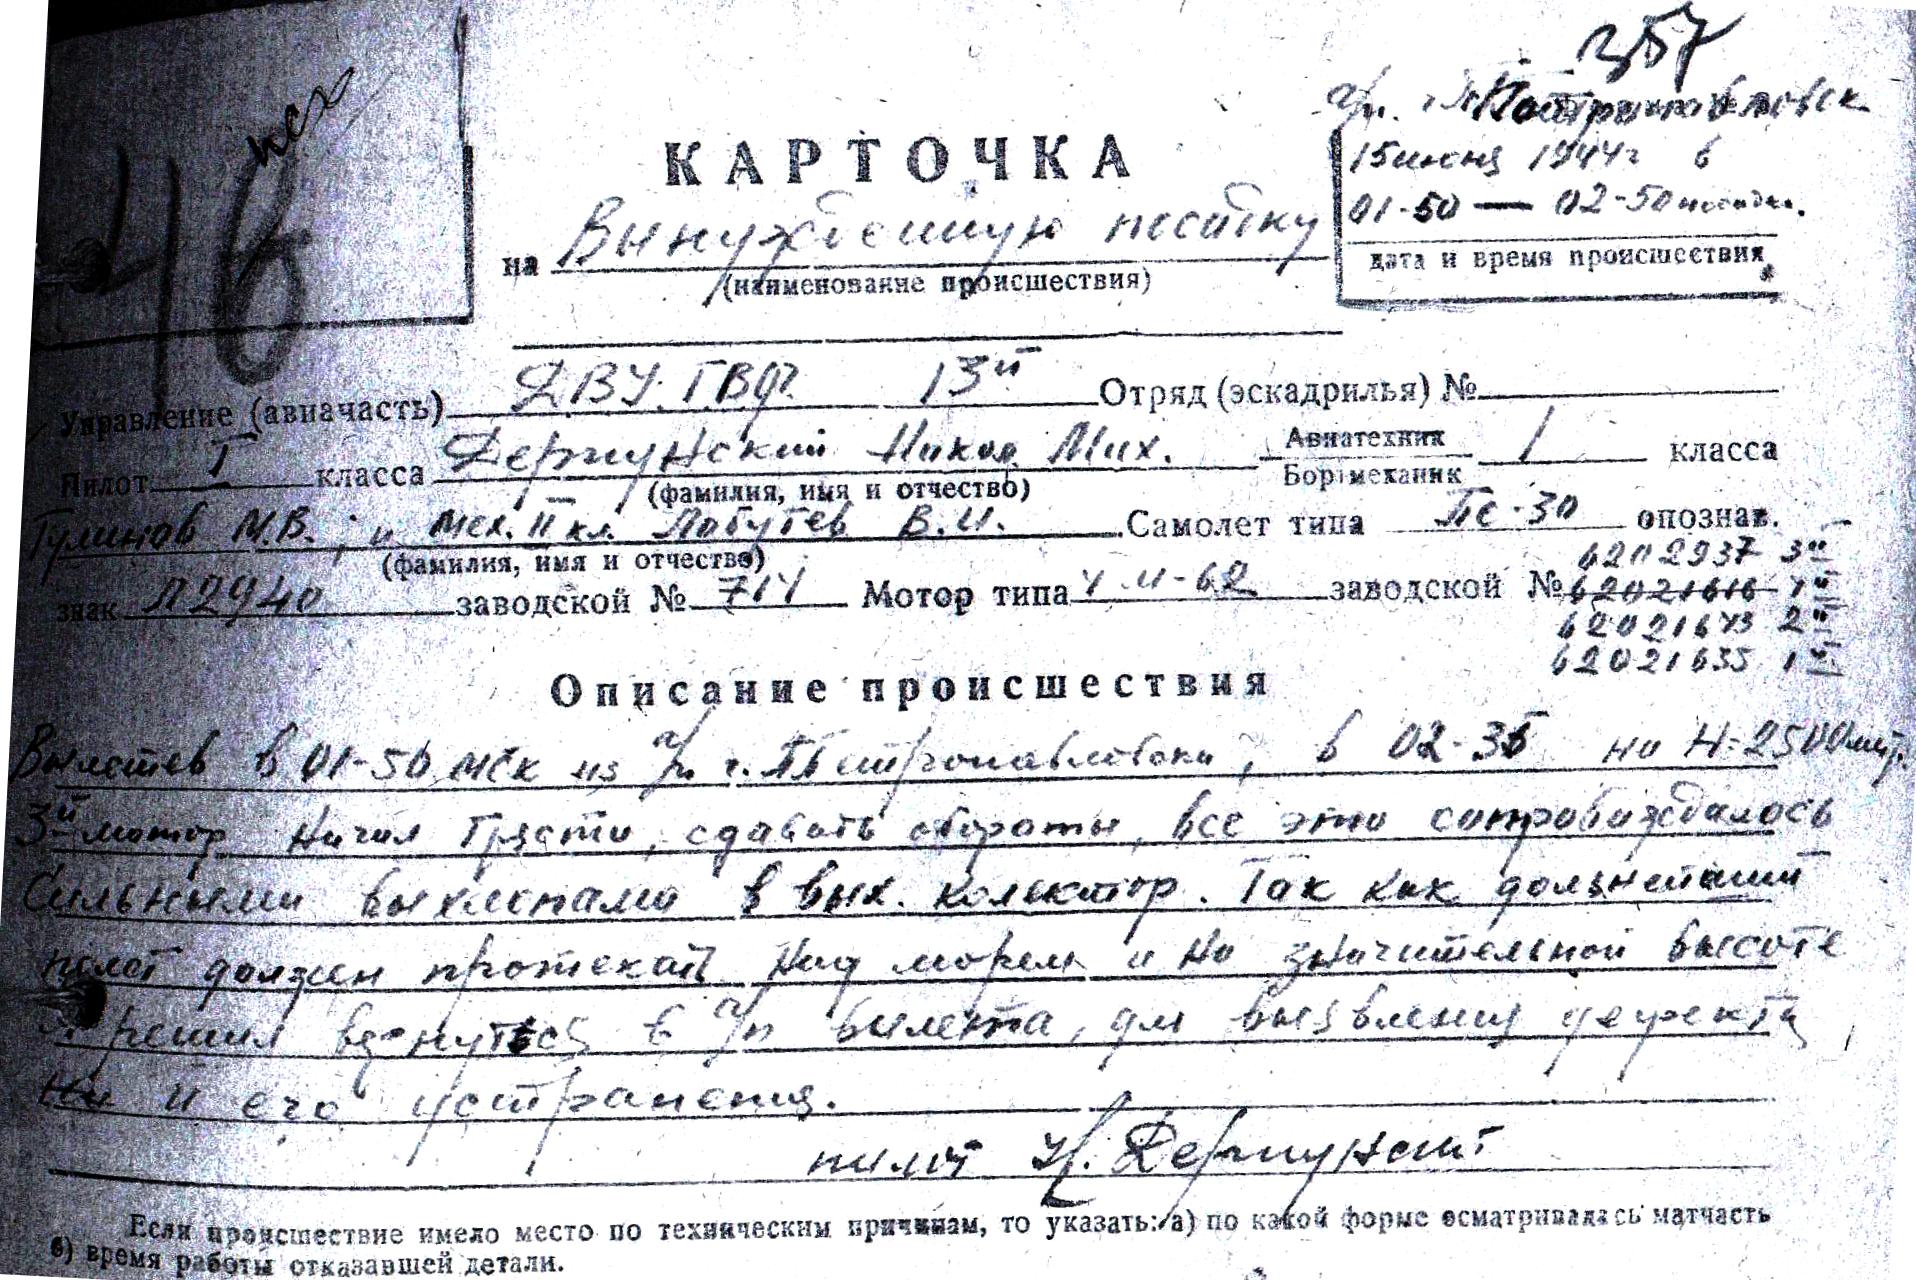 357
нсх
46
а/п. г. Петропавловск
КАРТОЧКА
15 июня 1944 г в
01-50 — 02-50 посадка.
дата и время происшествия
на Вынужденную посадку
(наименование происшествия)
Управление (авиачасть) ДВУ. ГВФ. 13й Отряд (эскадрилья) №
Пилот I класса Никол. Мих. Авиатехник Бортмеханик 1 класса
(фамилия, имя и отчество)
М.В.; и мех. II кл. Лабутев В.И. Самолет типа ПС-30 опознав.
(фамилия, имя и отчество)
знак Л2940 заводской № 714 Мотор типа 4 М-62 заводской № 6202937 3й
62021616 4й
62021643 2й
62021635 1й
Описание происшествия
Вылетев в 01-50 мск из а/п г. Петропавловска, в 02-35 на Н-2500 мтр.
3й мотор Начал трясти, сдавать обороты, все это сопровождалось
Сильными выхлопами в вых. колектор. Так как дальнейший
полет должен протекать Над морем и на значительной высоте
Я решил вернуться в а/п вылета, для выявления дефекта
На и его устранения.
пилот Н.
Если происшествие имело место по техническим причинам, то указать: а) по какой форме осматривалась матчасть
б) время работы отказавшей детали.